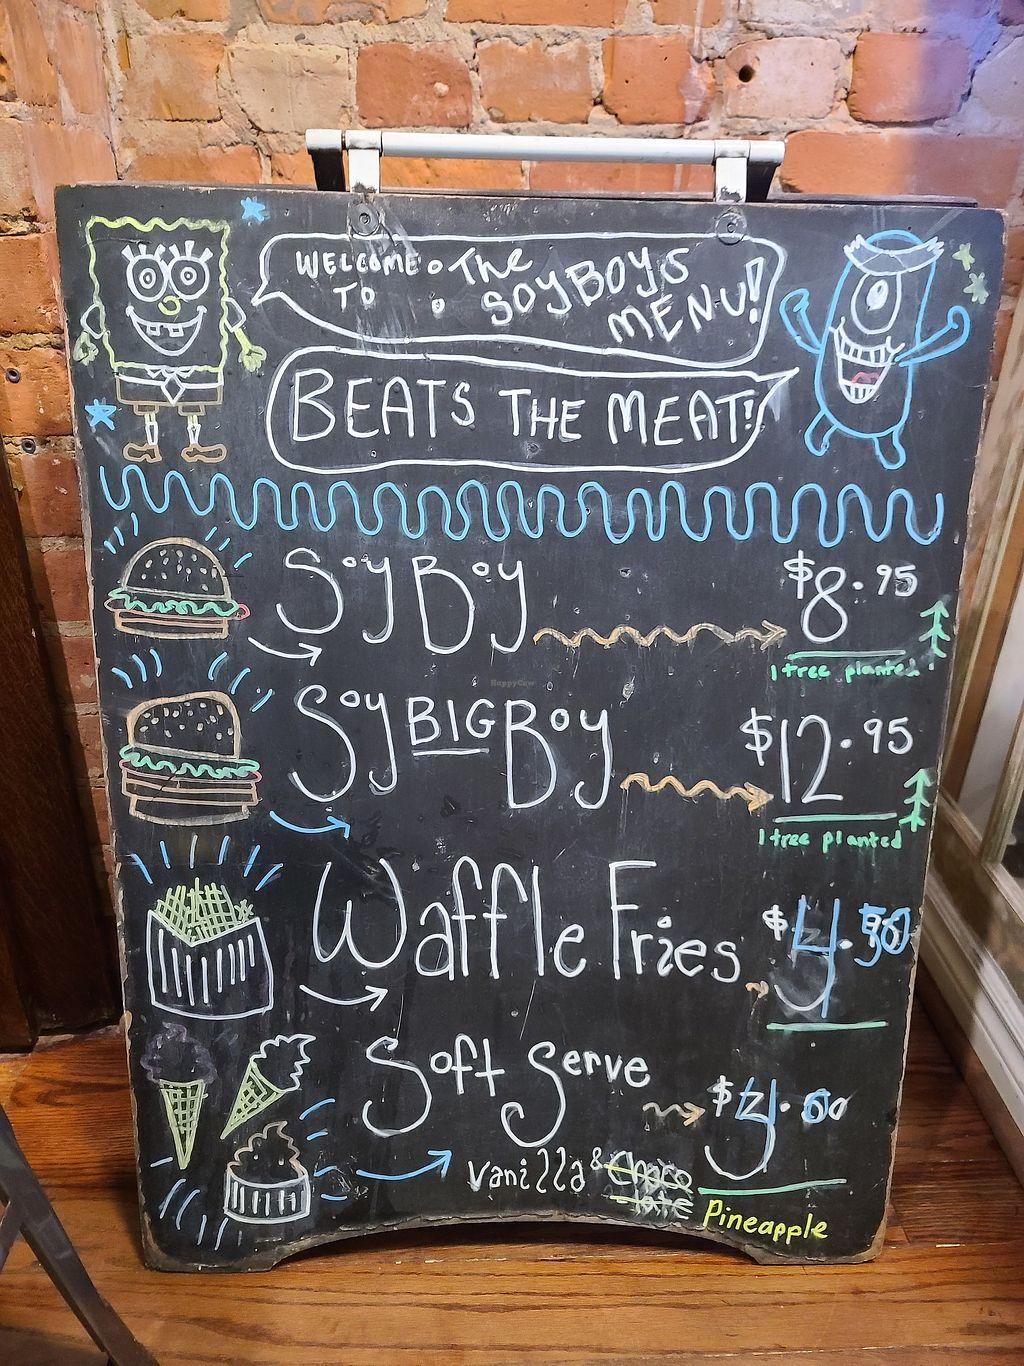 WELCOME TO : The SOYBOYS MENU!
BEATS THE MEAT!
SoyBoy $8.95
1 tree planted
HappyCow
Soy BIG Boy $12.95
1 tree planted
Waffle Fries $4.50
Soft Serve $4.00
Vanilla & Chocolate Pineapple